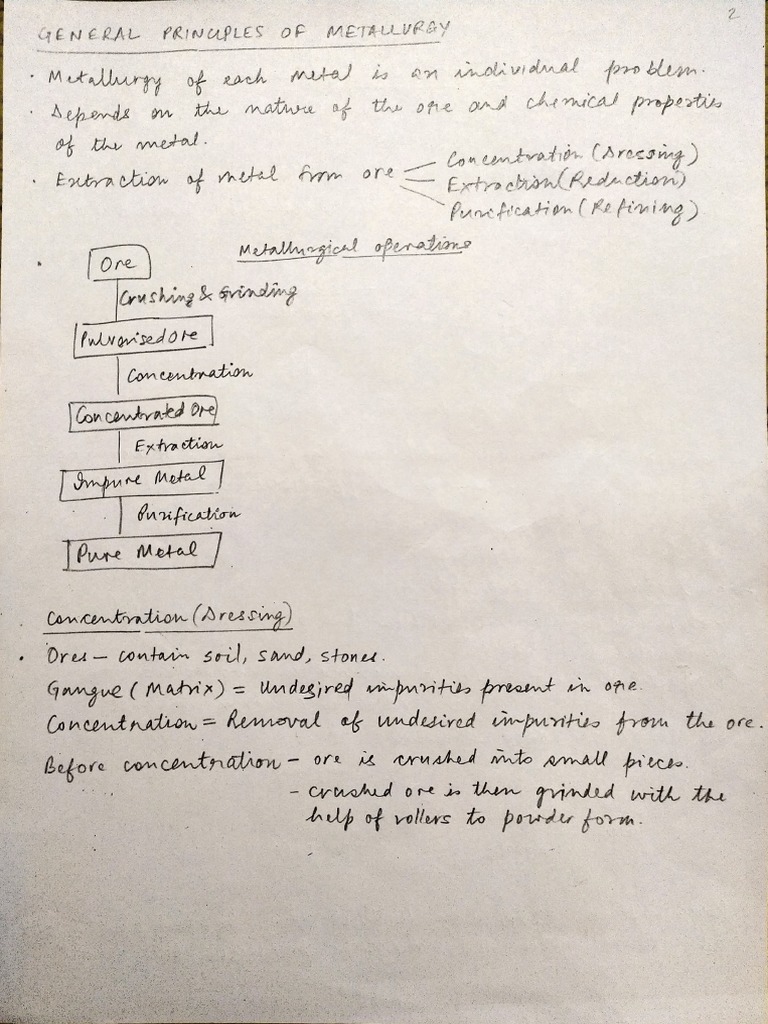 2
GENERAL PRINCIPLES OF METALLURGY
· Metallurgy of each metal is an individual problem.
· Depends on the nature of the ore and chemical properties
of the metal.
· Extraction of metal from ore
Concentration (Dressing)
Extraction (Reduction)
Purification (Refining)
Metallurgical operations
Ore
Crushing & Grinding
Pulvorised ore
Concentration
Concentrated Ore
Extraction
Impure Metal
Purification
Pure Metal
Concentration (Dressing)
· Ores – contain soil, sand, stones.
Gangue (Matrix) = Undesired impurities present in ore.
Concentration = Removal of undesired impurities from the ore.
Before concentration – ore is crushed into small pieces.
- crushed ore is then grinded with the
help of rollers to powder form.